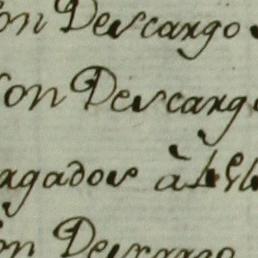 on Descargo
on Descarg
rgados à
on Descargo